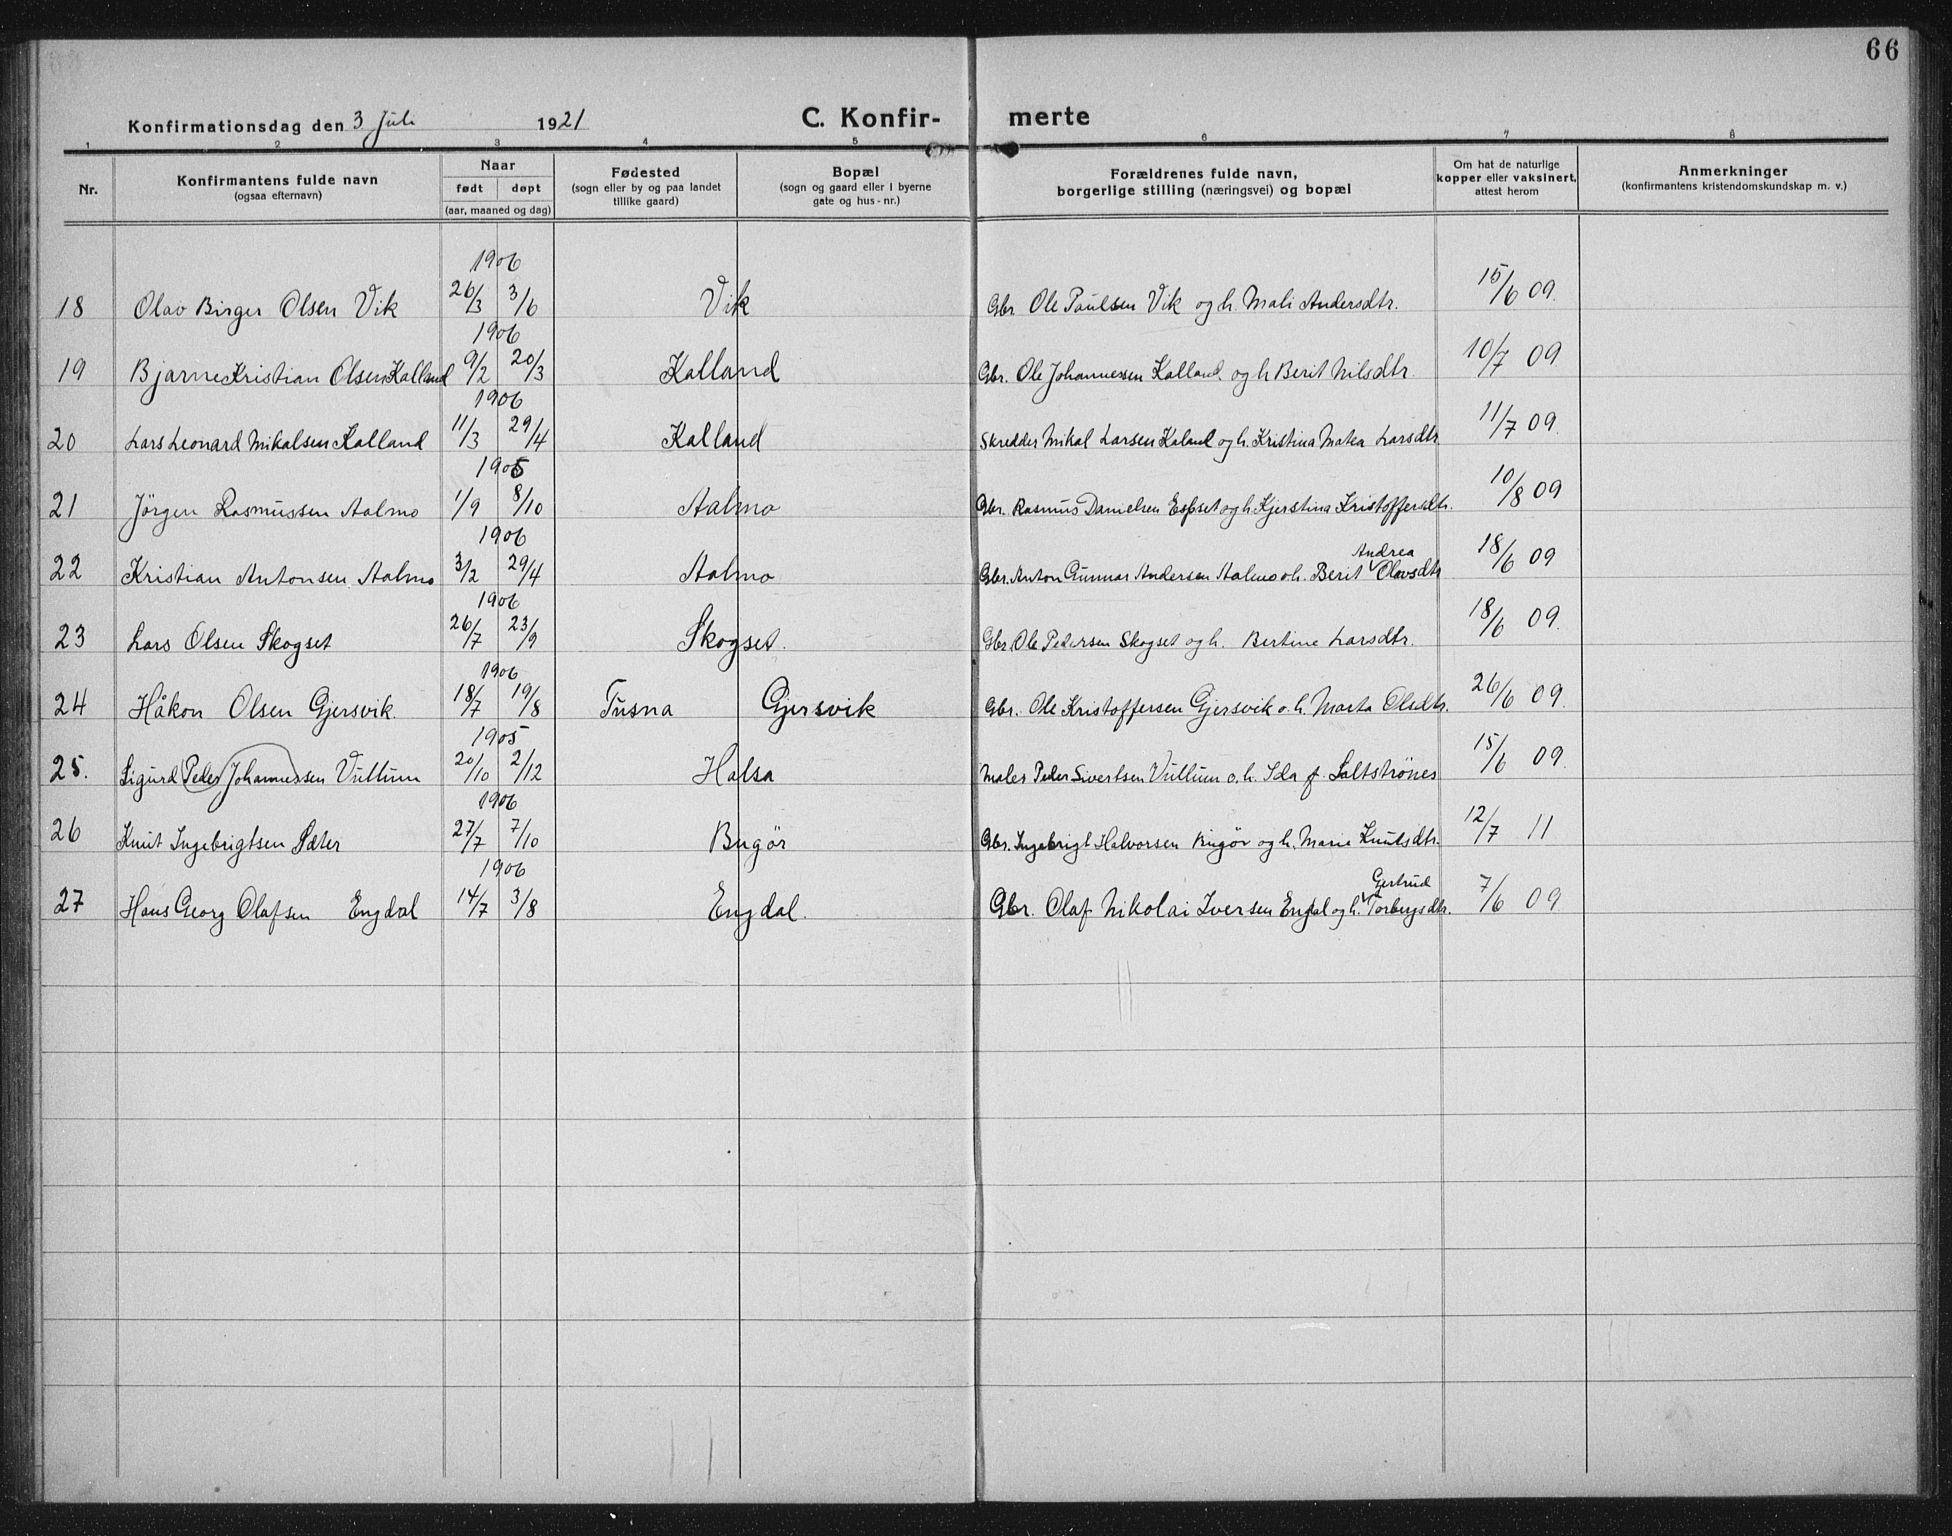 66
Konfirmationsdag den 3 Juli 1921 C. Konfir- merte
1 2 3 4 5 6 7 8
Nr. Konfirmantens fulde navn (ogsaa efternavn) Naar født døpt (aar, maaned og dag) Fødested (sogn eller by og paa landet tillike gaard) Bopæl (sogn og gaard eller i byerne gate og hus-nr.) Forældrenes fulde navn, borgerlige stilling (næringsvei) og bopæl Om hat de naturlige kopper eller vaksinert, attest herom Anmerkninger (konfirmantens kristendomskundskap m. v.)
1906
18 Olav Birger Olsen Vik 26/3 3/6 Vik Gbr. Ole Paulsen Vik og h. Mali Andersdtr. 15/6 09.
1906
19 Bjarne Kristian Olsen Kalland 9/2 20/3 Kalland Gbr. Ole Johannessen Kalland og h Berit Nilsdtr 10/7 09.
1906
20 Lars Leonard Mikalsen Kalland 11/3 29/4 Kalland Skredder Mikal Larsen Kaland og h. Kristina Matea Larsdtr 11/7 09.
1905
21 Jörgen Rasmussen Aalmo 1/9 8/10 Aalmo Gbr. Rasmus Danielsen Espset og h. Kjerstina Kristoffersdtr. 10/8 09
1906 Andrea
22 Kristian Antonsen Aalmo 3/2 29/4 Aalmo Gbr. Anton Gunnar Andersen Aalmo o h. Berit Olavsdtr 18/6 09
1906
23 Lars Olsen Skogset 26/7 23/9 Skogset. Gbr. Ole Pedersen Skogset og h. Bertine Larsdtr. 18/6 09.
1906
24 Håkon Olsen Gjersvik. 18/7 19/8 Tusna Gjersvik Gbr. Ole Kristoffersen Gjersvik o. h. Marta Olsdtr. 26/6 09.
1905
25. Sigurd Peder Johannessen Vullum 20/10 2/12 Halsa Maler Peder Sivertsen Vullum o. h. Ida f. Saltströnes 15/6 09.
1906
26 Knut Ingebrigtsen Sæter 27/7 7/10 Bugör Gbr. Ingebrigt Halvorsen Bugör og h. Marie Knutsdtr. 12/7 11
1906 Gjertrud
27 Hans Georg Olafsen Engdal 14/7 3/8 Engdal. Gbr. Olaf Nikolai Iversen Engdal og h. Torbergsdtr. 7/6 09